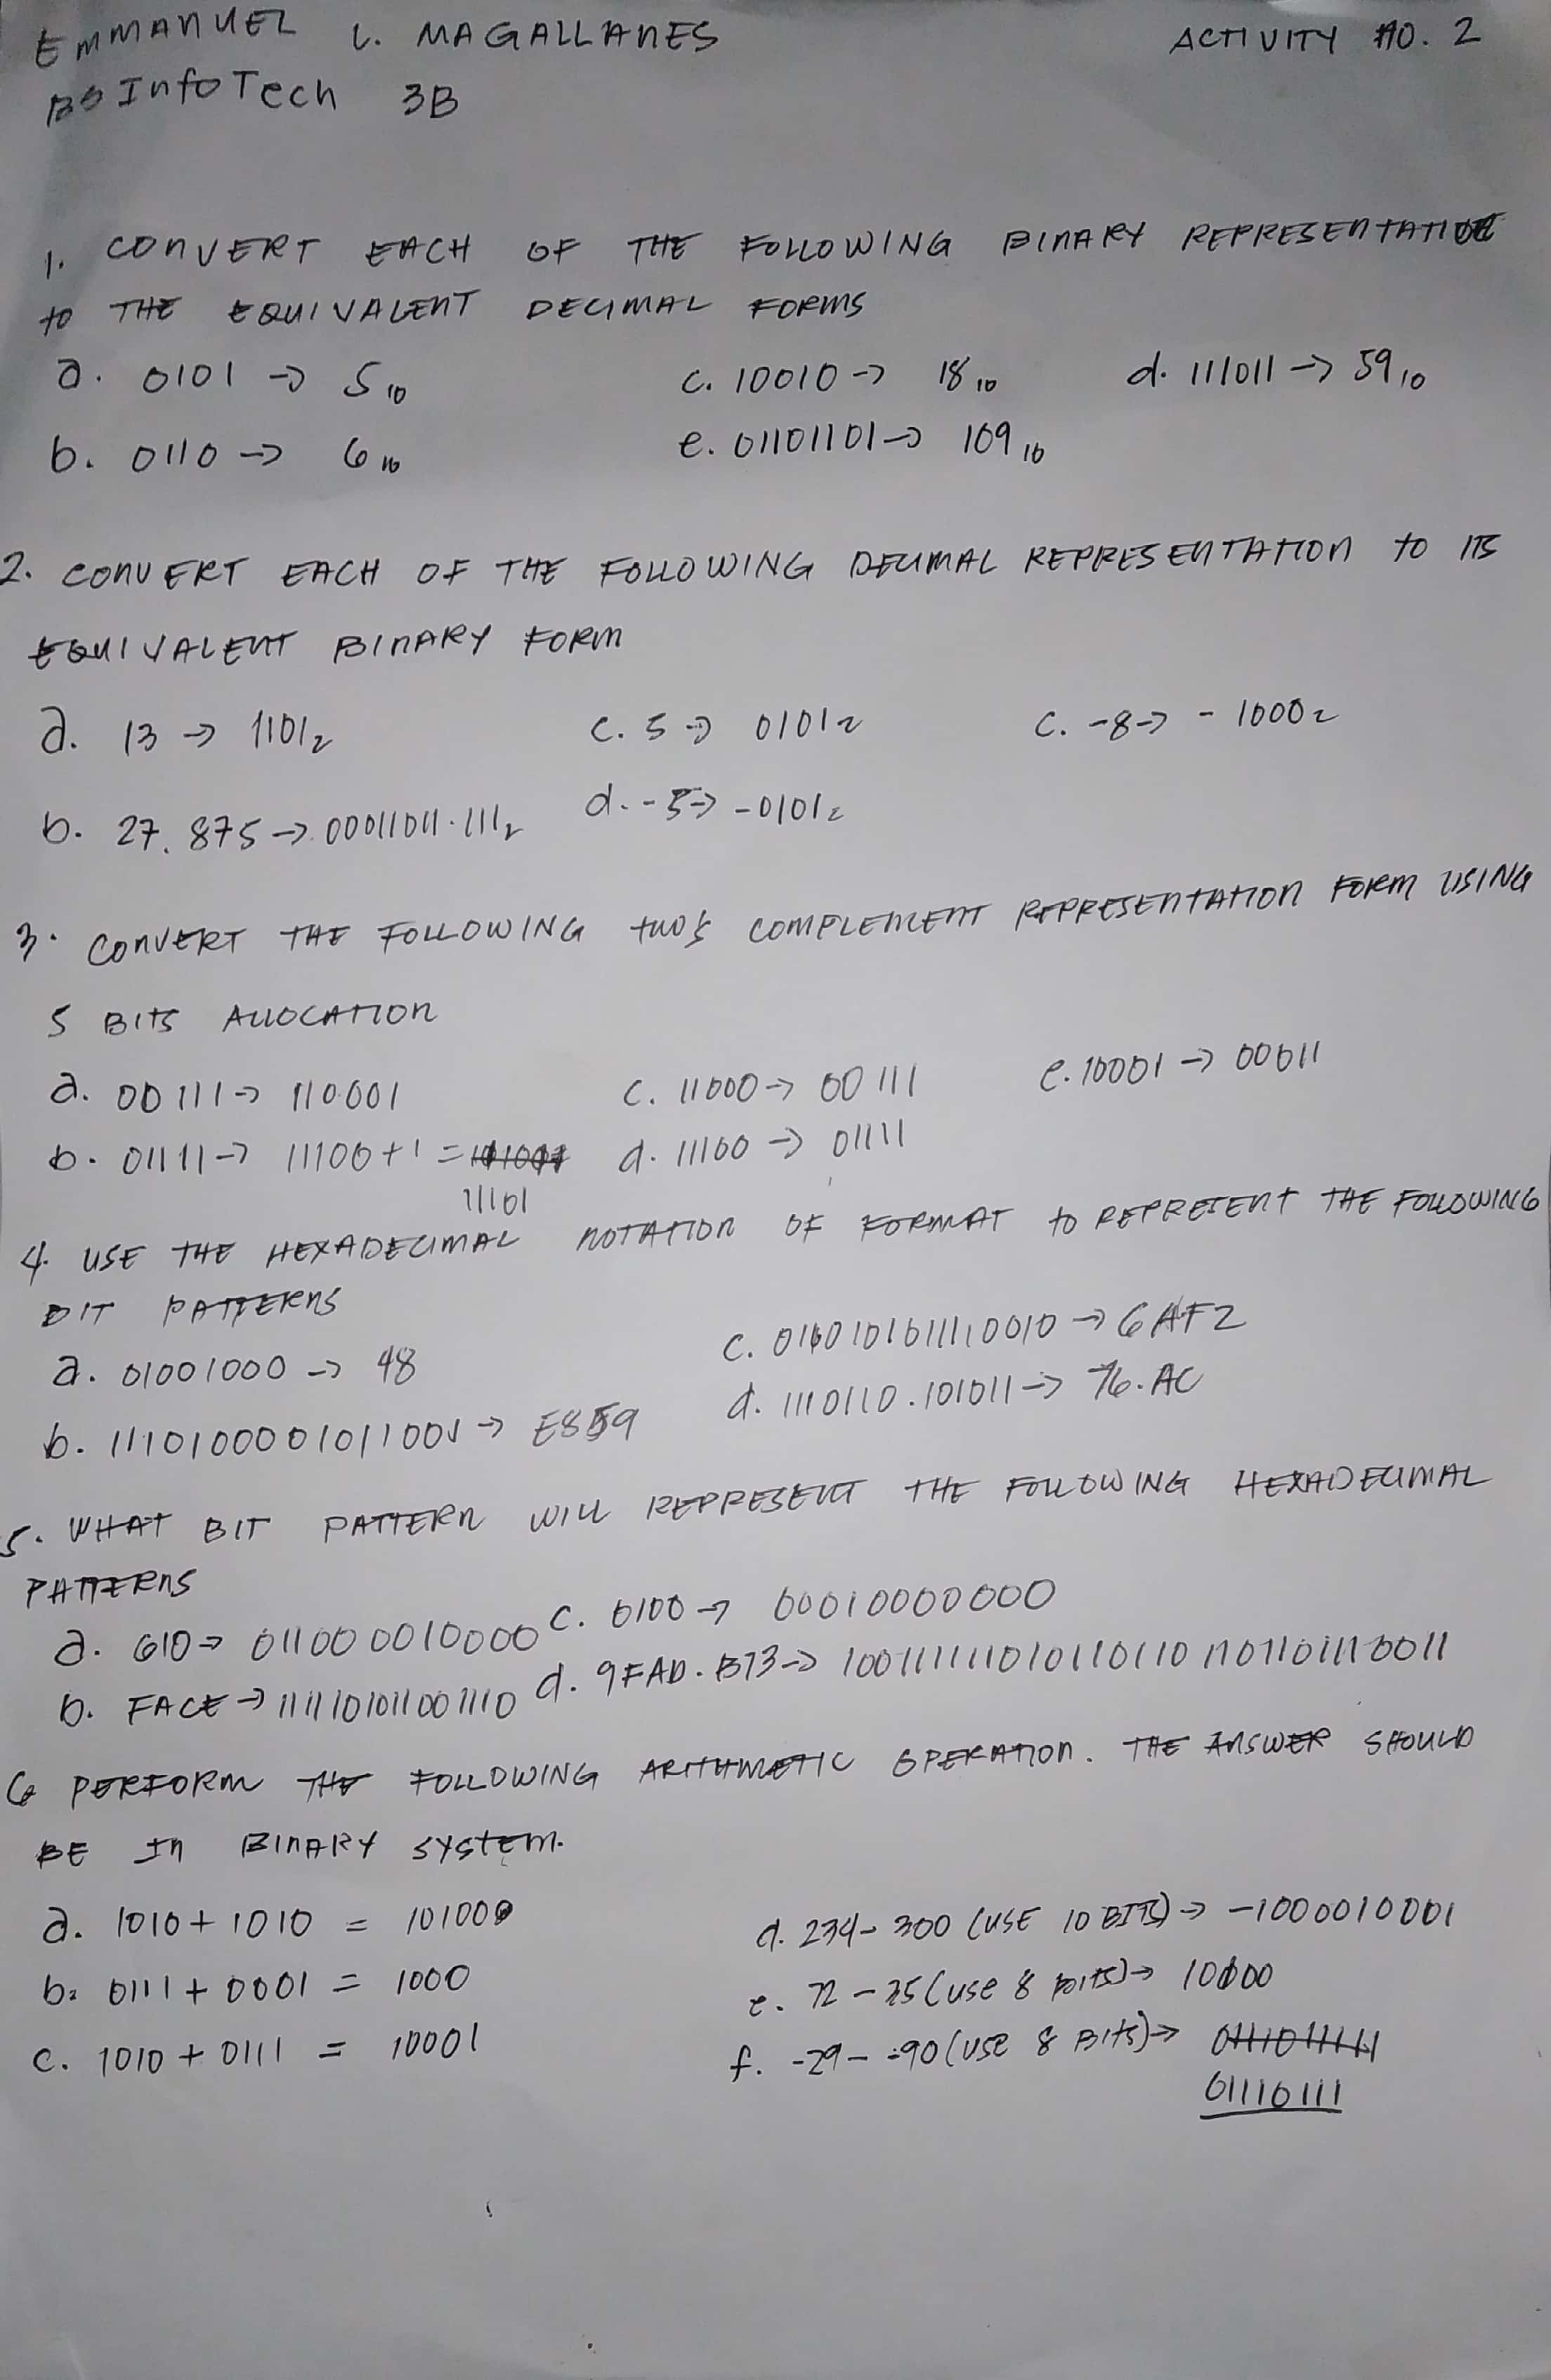 EMMANUEL L. MAGALLANES ACTIVITY NO. 2
BS InfoTech 3B
1. CONVERT EACH OF THE FOLLOWING BINARY REPRESENTATION
to THE EQUIVALENT DECIMAL FORMS
a. 0101 → 5₁₀ c. 10010 → 18₁₀ d. 111011 → 59₁₀
b. 0110 → 6₁₀ e. 01101101 → 109₁₀
2. CONVERT EACH OF THE FOLLOWING DECIMAL REPRESENTATION to ITS
EQUIVALENT BINARY FORM
a. 13 → 1101₂ c. 5 → 0101₂ c. -8 → - 1000₂
b. 27.875 → 00011011.111₂ d. -5 → -0101₂
3. CONVERT THE FOLLOWING two's COMPLEMENT REPRESENTATION FORM USING
5 BITS ALLOCATION
a. 00111 → 110001 c. 11000 → 00111 e. 10001 → 00011
b. 01111 → 11100+1 = d. 11100 → 01111
11101
4. USE THE HEXADECIMAL NOTATION OF FORMAT to REPRESENT THE FOLLOWING
BIT PATTERNS
a. 01001000 → 48 c. 0110101011110010 → 6AF2
b. 1110100001011001 → E859 d. 1110110.101011 → 76.AC
5. WHAT BIT PATTERN WILL REPRESENT THE FOLLOWING HEXADECIMAL
PATTERNS
a. 610 → 011000010000 c. 0100 → 00010000000
b. FACE → 1111101011001110 d. 9FAD.B73 →
6 PERFORM THE FOLLOWING ARITHMETIC OPERATION. THE ANSWER SHOULD
BE IN BINARY SYSTEM.
a. 1010 + 1010 = 101000 d. 234 - 300 (USE 10 BITS) → -1000010001
b. 0111 + 0001 = 1000 e. 72 - 35 (use 8 bits) → 10000
c. 1010 + 0111 = 10001 f. -29 - -90 (use 8 Bits) →
01110111